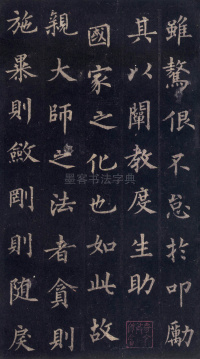 雖驁佷不怠於叩勵
其以闡教度生助
國家之化也如此故
親大師之法者貪則
施暴則斂剛則隨戾
墨客书法字典